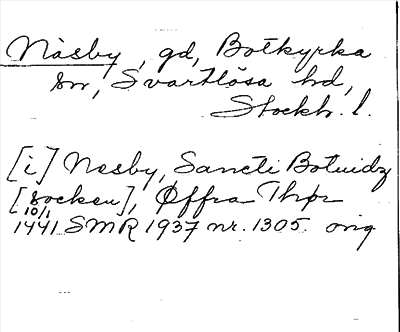 Näsby, gd, Botkyrka
sn, Svartlösa hd,
Stockh. l.
[i] Nesby, Sancti Botuidz
[socken], Øffra Thør
10/1
1441 SMR 1937 nr. 1305. orig